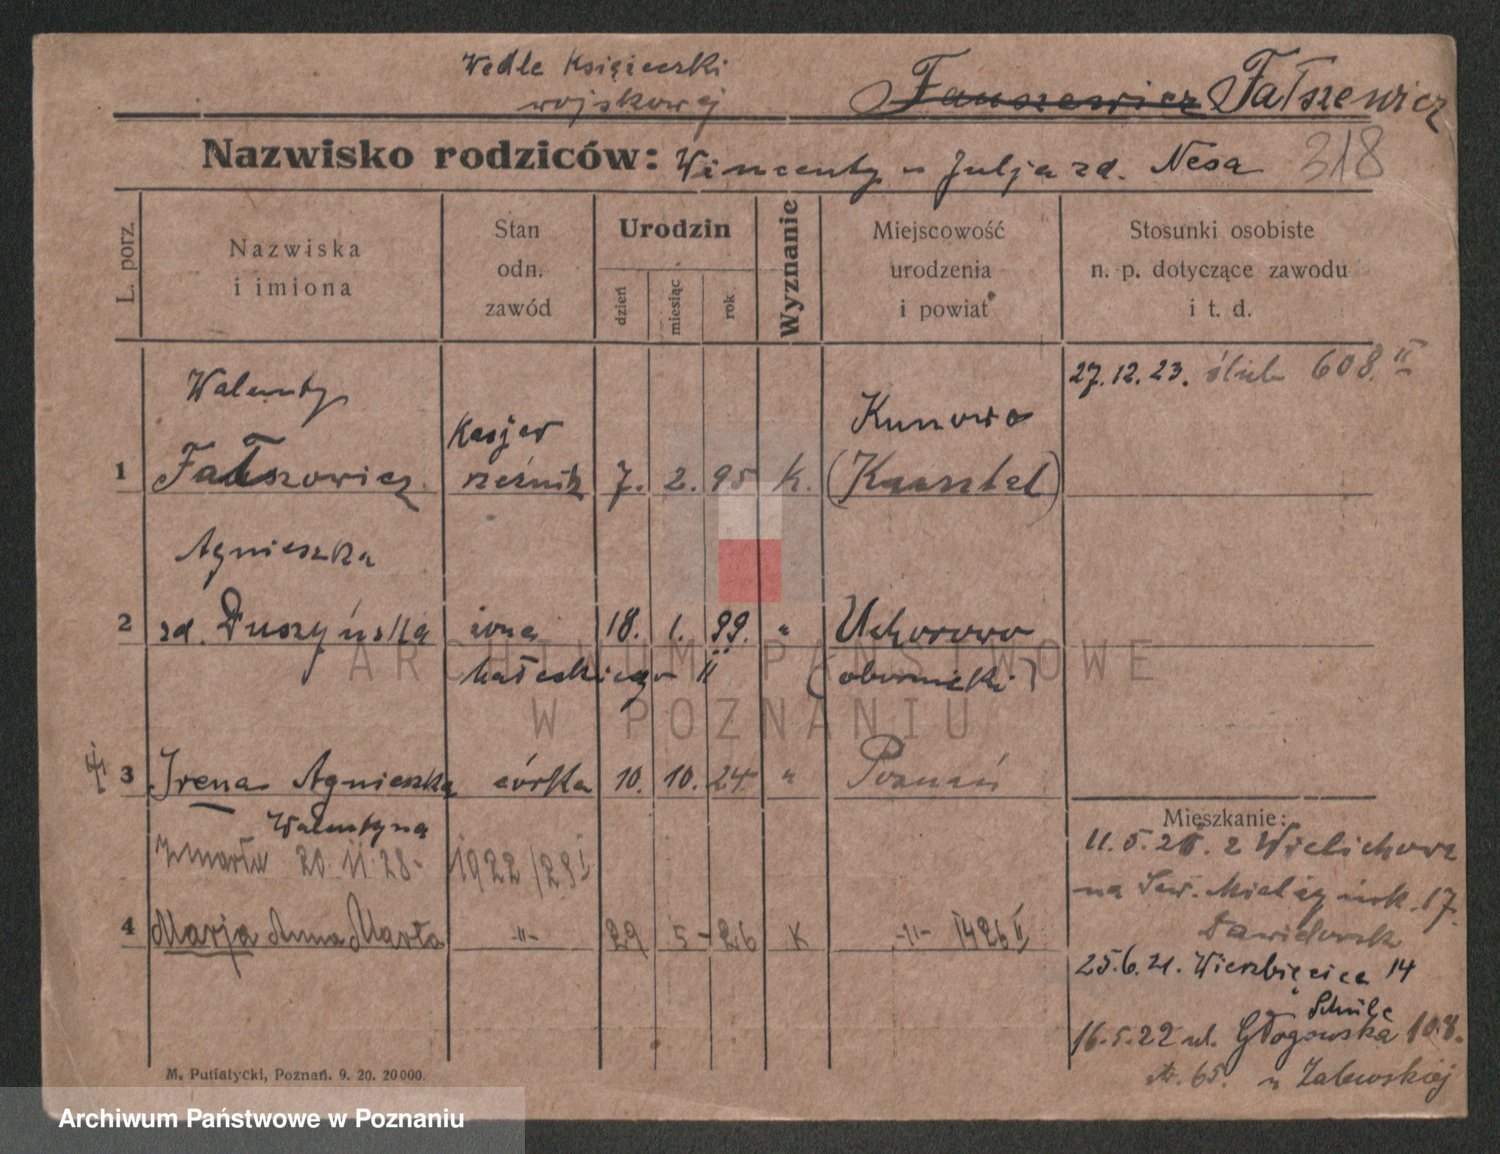 Wedle Książeczki
wojskowej
Fauszewicz Fałszewicz
Nazwisko rodziców: Wincenty u Julja zd. Nesa
318
L. porz.
Nazwiska
i imiona
Stan
odn.
zawód
Urodzin
dzień
miesiąc
rok
Wyznanie
Miejscowość
urodzenia
i powiat
Stosunki osobiste
n. p. dotyczące zawodu
i t. d.
27.12.23. ślub 608 II
Walenty
Kasjer
Kunowo
1 Fałszowicz rzeźnik 7. 2. 95 K.
Agnieszka
2 zd. Duszyńska żona 18. 1. 99. " Uchorowo
II
(obornicki)
3 Irena Agnieszka córka 10. 10. 24 " Poznań
Walentyna
zmarła 20.11.28- 1922/28 I
4 Marja Anna Marta -"- 29 5 - 26 K -"- 1426 II
Mieszkanie:
11.5.20. z Wielichowa
na Sew. Mielżyńsk. 17.
Dawidowsk
25.6.21. Wierzbięcice 14
Schulz
16.5.22 ul. Głogowska 108.
65. u Zalewskiej
M. Putiatycki, Poznań. 9. 20. 20000.
ARCHIWUM PAŃSTWOWE
W POZNANIU
Archiwum Państwowe w Poznaniu